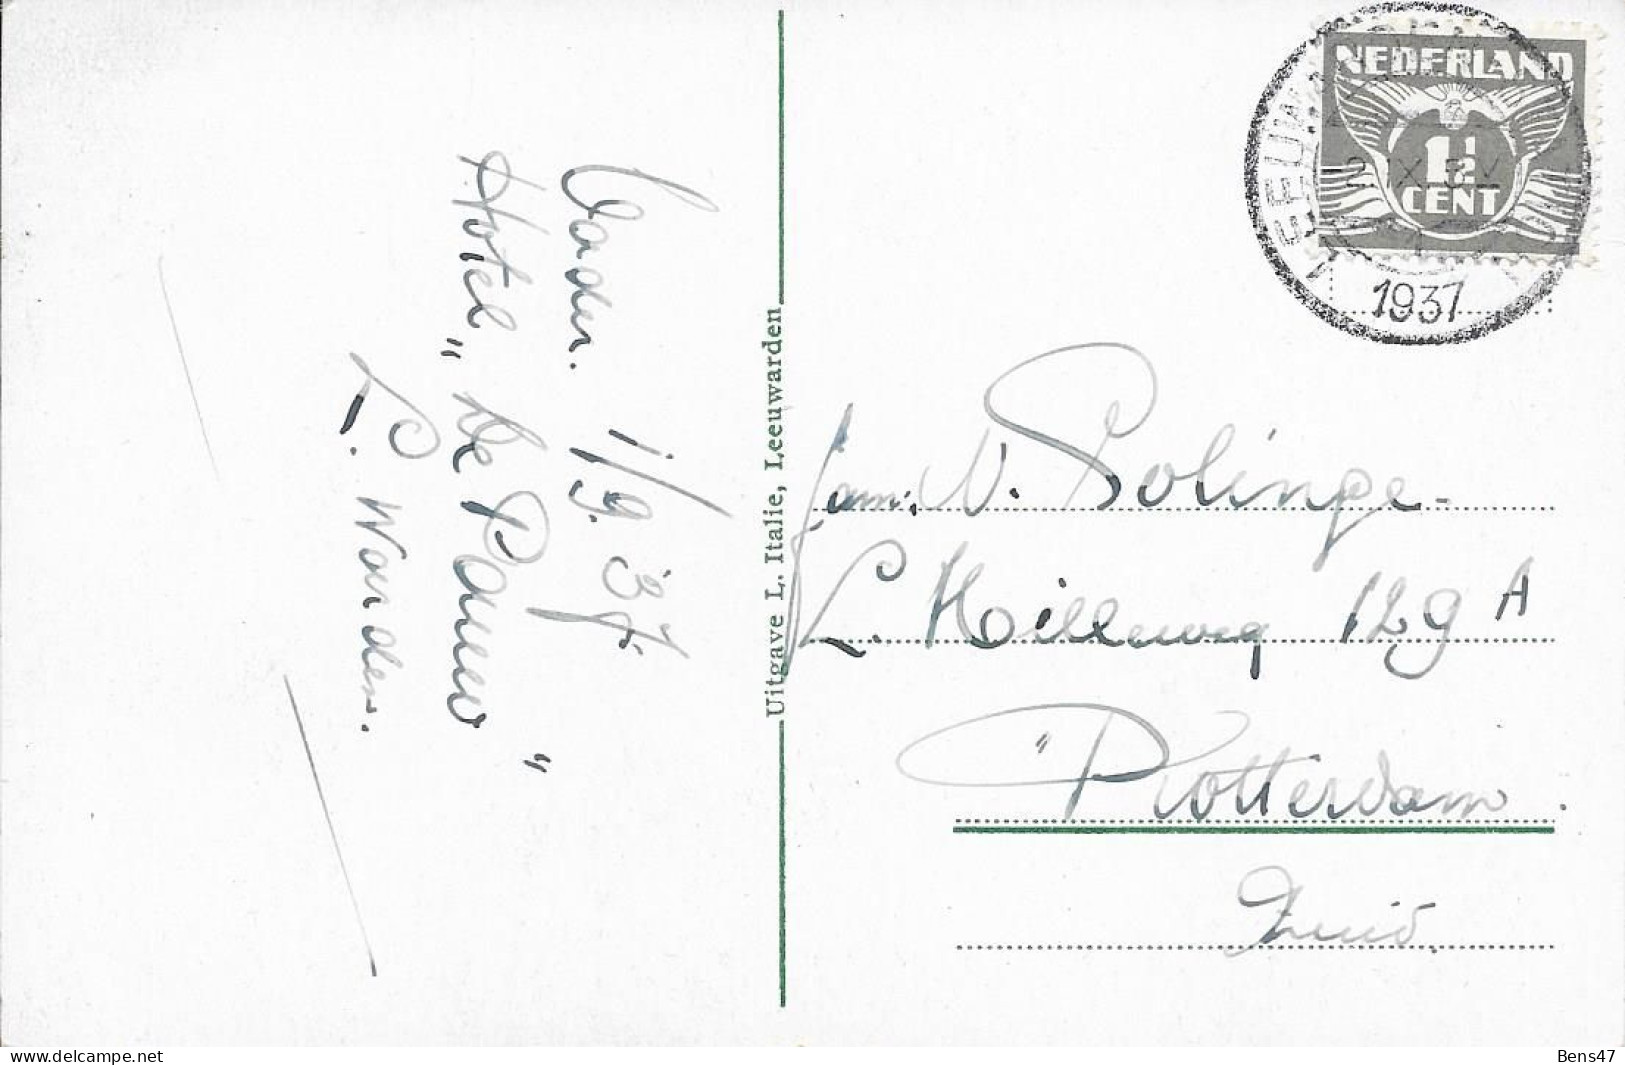 Vader.
1/9. 37.
Hotel „De Pauw"
L. Wonder.
Uitgave L. Italie, Leeuwarden
NEDERLAND
1½
CENT
LEEUW
2 IX 5 V
1937
fam: V. Solinge-
L. Hilleweg 129 A
"Rotterdam.
Zuid.
www.delcampe.net
Bens47